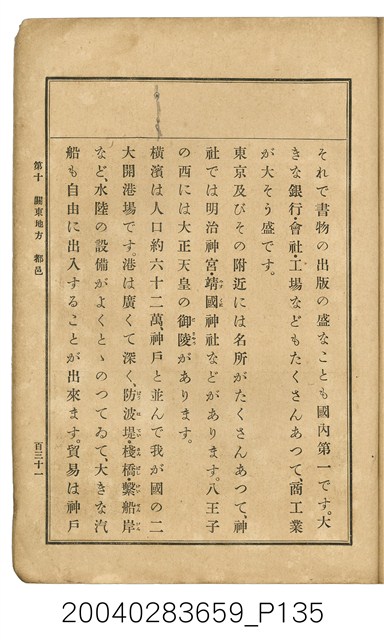 それで書物の出版の盛なことも國內第一です。大
きな銀行・會社・工場などもたくさんあつて、商工業
が大そう盛です。
東京及びその附近には名所がたくさんあつて、神
社では明治神宮・靖國神社などがあります。八王子
の西には大正天皇の御陵があります。
橫濱は人口約六十二萬、神戶と並んで我が國の二
大開港場です。港は廣くて深く、防波堤・棧橋・繫船岸
など、水陸の設備がよくとゝのつてゐて、大きな汽
船も自由に出入することが出來ます。貿易は神戶
第十 關東地方 都邑
百三十一
20040283659_P135